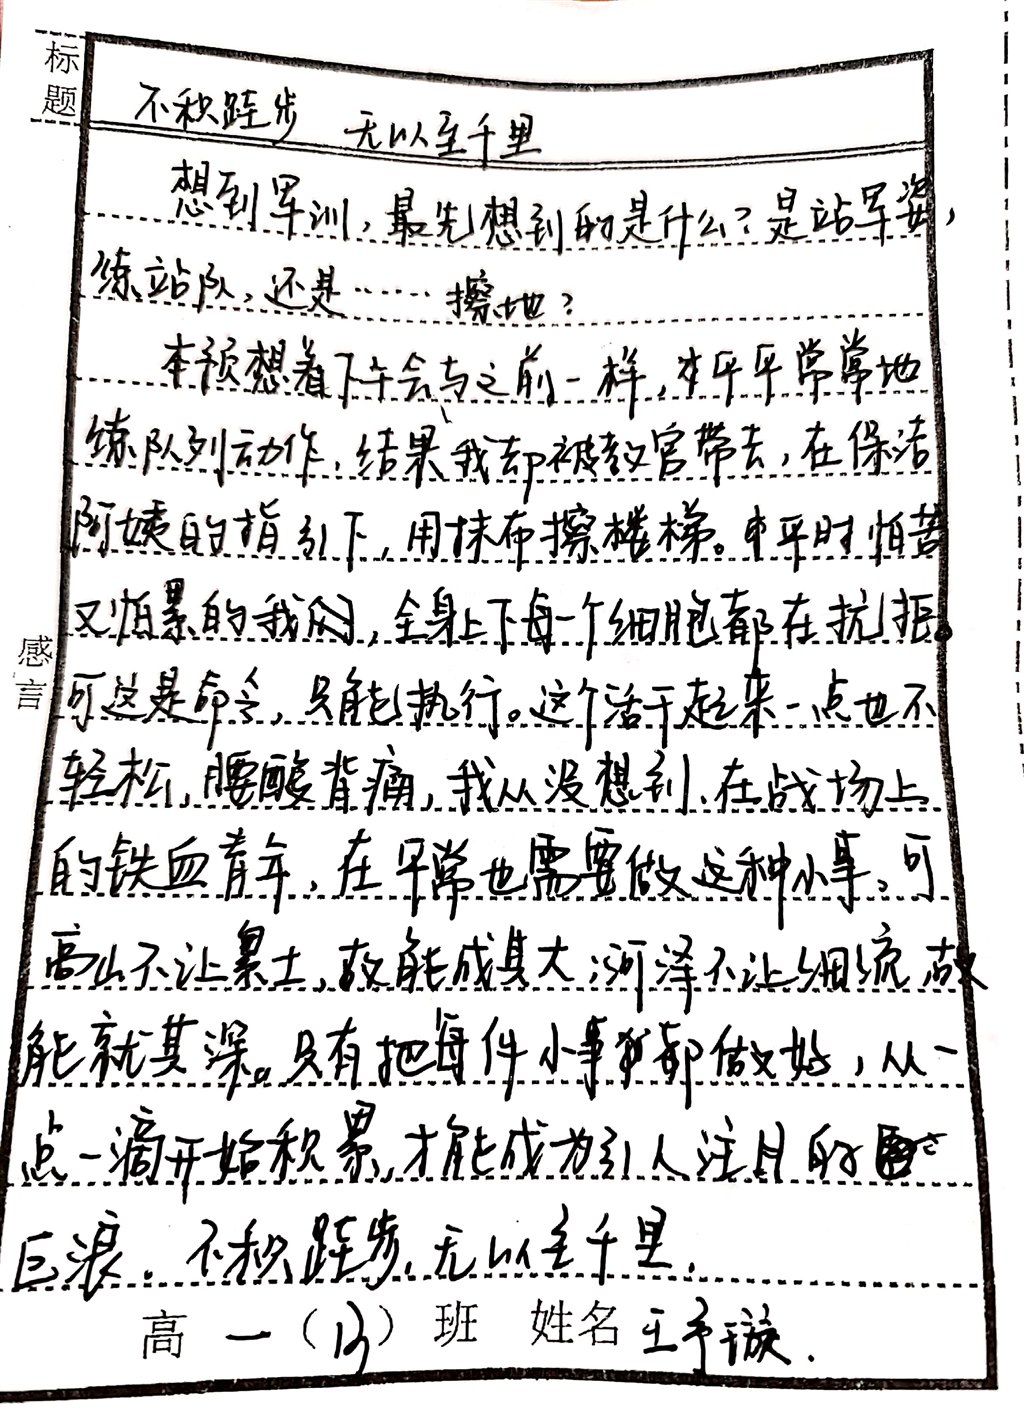 标题
不积跬步 无以至千里
想到军训，最先想到的是什么？是站军姿，
练站队，还是……擦地？
本预想着下午会与之前一样，平平常常地
练队列动作，结果我却被教官带去，在保洁
阿姨的指引下，用抹布擦楼梯。平时怕苦
又怕累的我们，全身上下每一个细胞都在抗拒。
感言
可这是命令，只能执行。这个活干起来一点也不
轻松，腰酸背痛，我从没想到，在战场上
的铁血青年，在平常也需要做这种小事，可
高山不让累土，故能成其大；河泽不让细流，故
能就其深。只有把每件小事都做好，从一
点一滴开始积累，才能成为引人注目的
巨浪。不积跬步，无以至千里。
高一（13）班 姓名 王予璇.